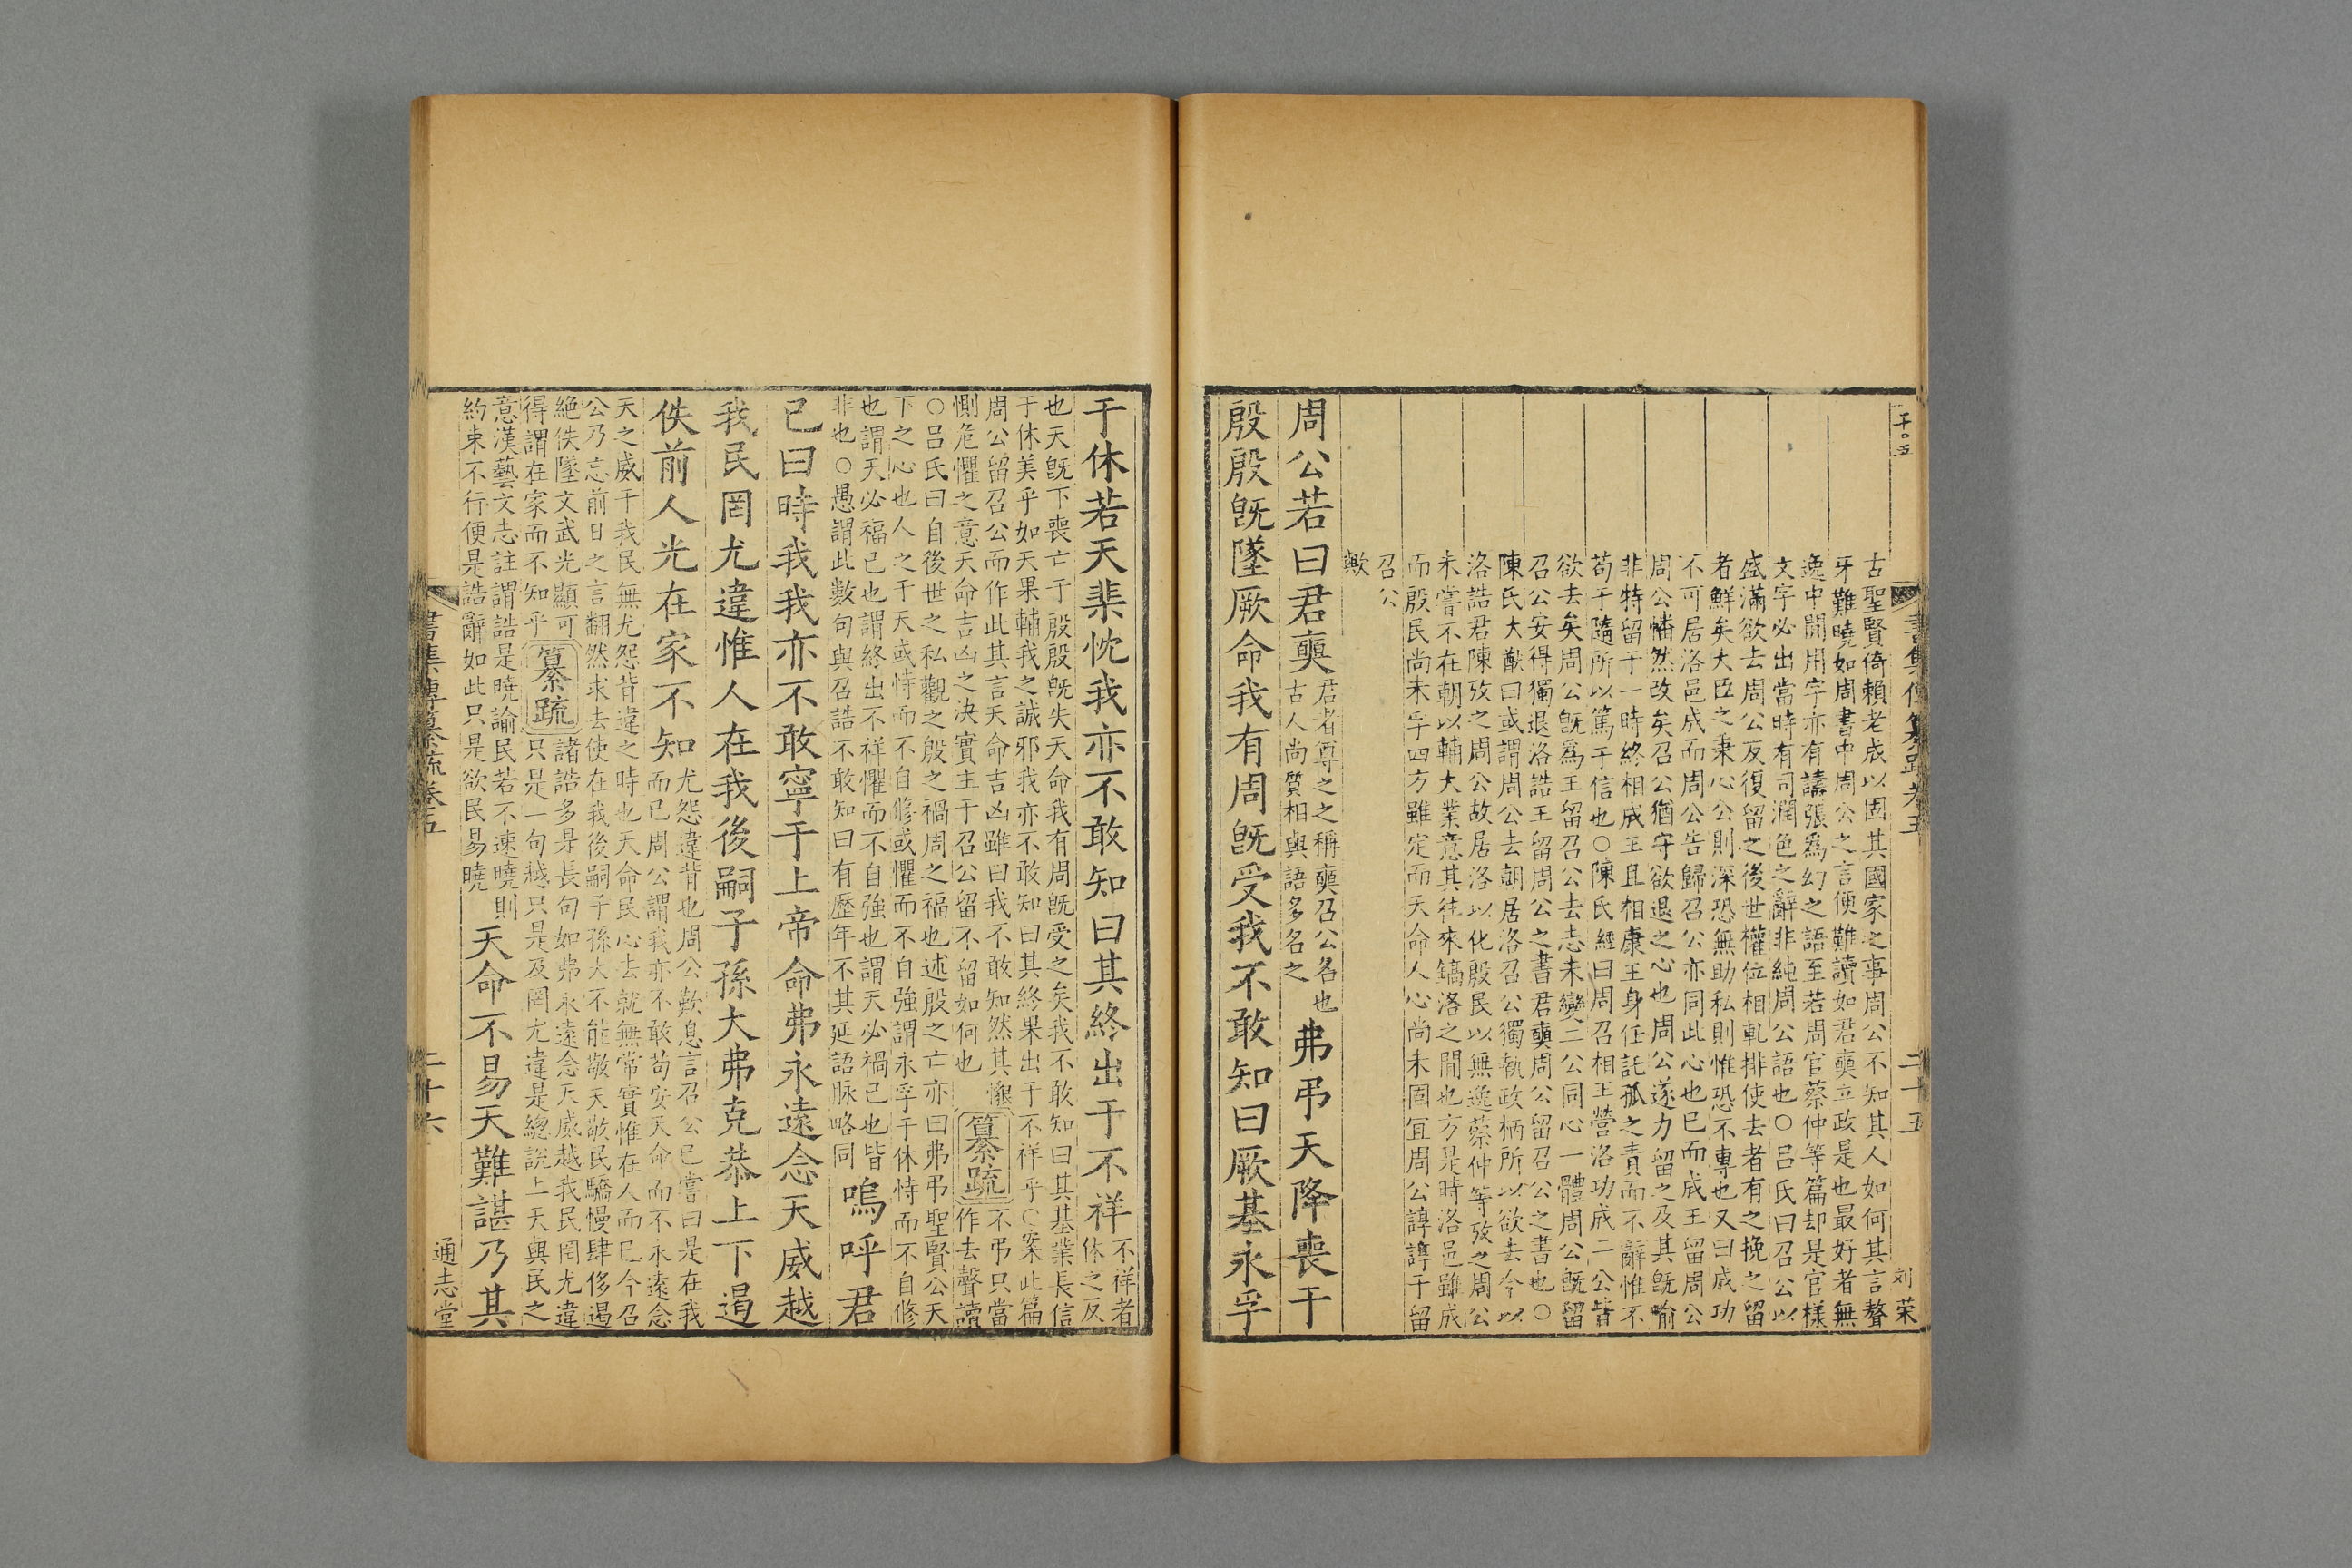 千〇五
書集傳纂疏卷五
二十五
刘荣
古聖賢倚賴老成以固其國家之事周公不知其人如何其言聱
牙難曉如周書中周公之言便難讀如君奭立政是也最好者無
逸中間用字亦有譸張爲幻之語至若周官蔡仲等篇却是官樣
文字必出當時有司潤色之辭非純周公語也○呂氏曰召公以
盛滿欲去周公反復留之後世權位相軋排使去者有之挽之留
者鮮矣大臣之秉心公則深恐無助私則惟恐不專也又曰成功
不可居洛邑成而周公告歸召公亦同此心也已而成王留周公
周公幡然改矣召公猶守欲退之心也周公遂力留之及其旣喻
非特留于一時終相成王且相康王身任託孤之責而不辭惟不
苟于隨所以篤于信也○陳氏經曰周召相王營洛功成二公皆
欲去矣周公旣爲王留召公去志未變二公同心一體周公旣留
召公安得獨退洛誥王留周公之書君奭周公留召公之書也○
陳氏大猷曰或謂周公去朝居洛召公獨執政柄所以欲去今以
洛誥君陳攷之周公故居洛以化殷民以無逸蔡仲等攷之周公
未嘗不在朝以輔大業意其往來鎬洛之間也方是時洛邑雖成
而殷民尚未孚四方雖定而天命人心尚未固宜周公諄諄于留
召公
歟
周公若曰君奭君者尊之之稱奭召公名也
古人尚質相與語多名之弗弔天降喪于
殷殷旣墜厥命我有周旣受我不敢知曰厥基永孚
于休若天棐忱我亦不敢知曰其終出于不祥不祥者
休之反
也天旣下喪亡于殷殷旣失天命我有周旣受之矣我不敢知曰其基業長信
于休美乎如天果輔我之誠邪我亦不敢知曰其終果出于不祥乎○案此篇
周公留召公而作此其言天命吉凶雖曰我不敢知然其懇
惻危懼之意天命吉凶之決實主于召公留不留如何也纂疏不弔只當
作去聲讀
○呂氏曰自後世之私觀之殷之禍周之福也述殷之亡亦曰弗弔聖賢公天
下之心也人之于天或恃而不自修或懼而不自強謂永孚于休恃而不自修
也謂天必福已也謂終出不祥懼而不自強也謂天必禍已也皆
非也○愚謂此數句與召誥不敢知曰有歷年不其延語脉略同嗚呼君
已曰時我我亦不敢寧于上帝命弗永遠念天威越
我民罔尤違惟人在我後嗣子孫大弗克恭上下遏
佚前人光在家不知尤怨違背也周公歎息言召公已嘗曰是在我
而已周公謂我亦不敢苟安天命而不永遠念
天之威于我民無尤怨背違之時也天命民心去就無常實惟在人而已今召
公乃忘前日之言翻然求去使在我後嗣子孫大不能敬天敬民驕慢肆侈遏
絕佚墜文武光顯可
得謂在家而不知乎纂疏諸誥多是長句如弗永遠念天威越我民罔尤違
只是一句越只是及罔尤違是總說上天與民之
意漢藝文志註謂誥是曉諭民若不速曉則
約束不行便是誥辭如此只是欲民易曉天命不易天難諶乃其
書集傳纂疏卷五
二十六
通志堂